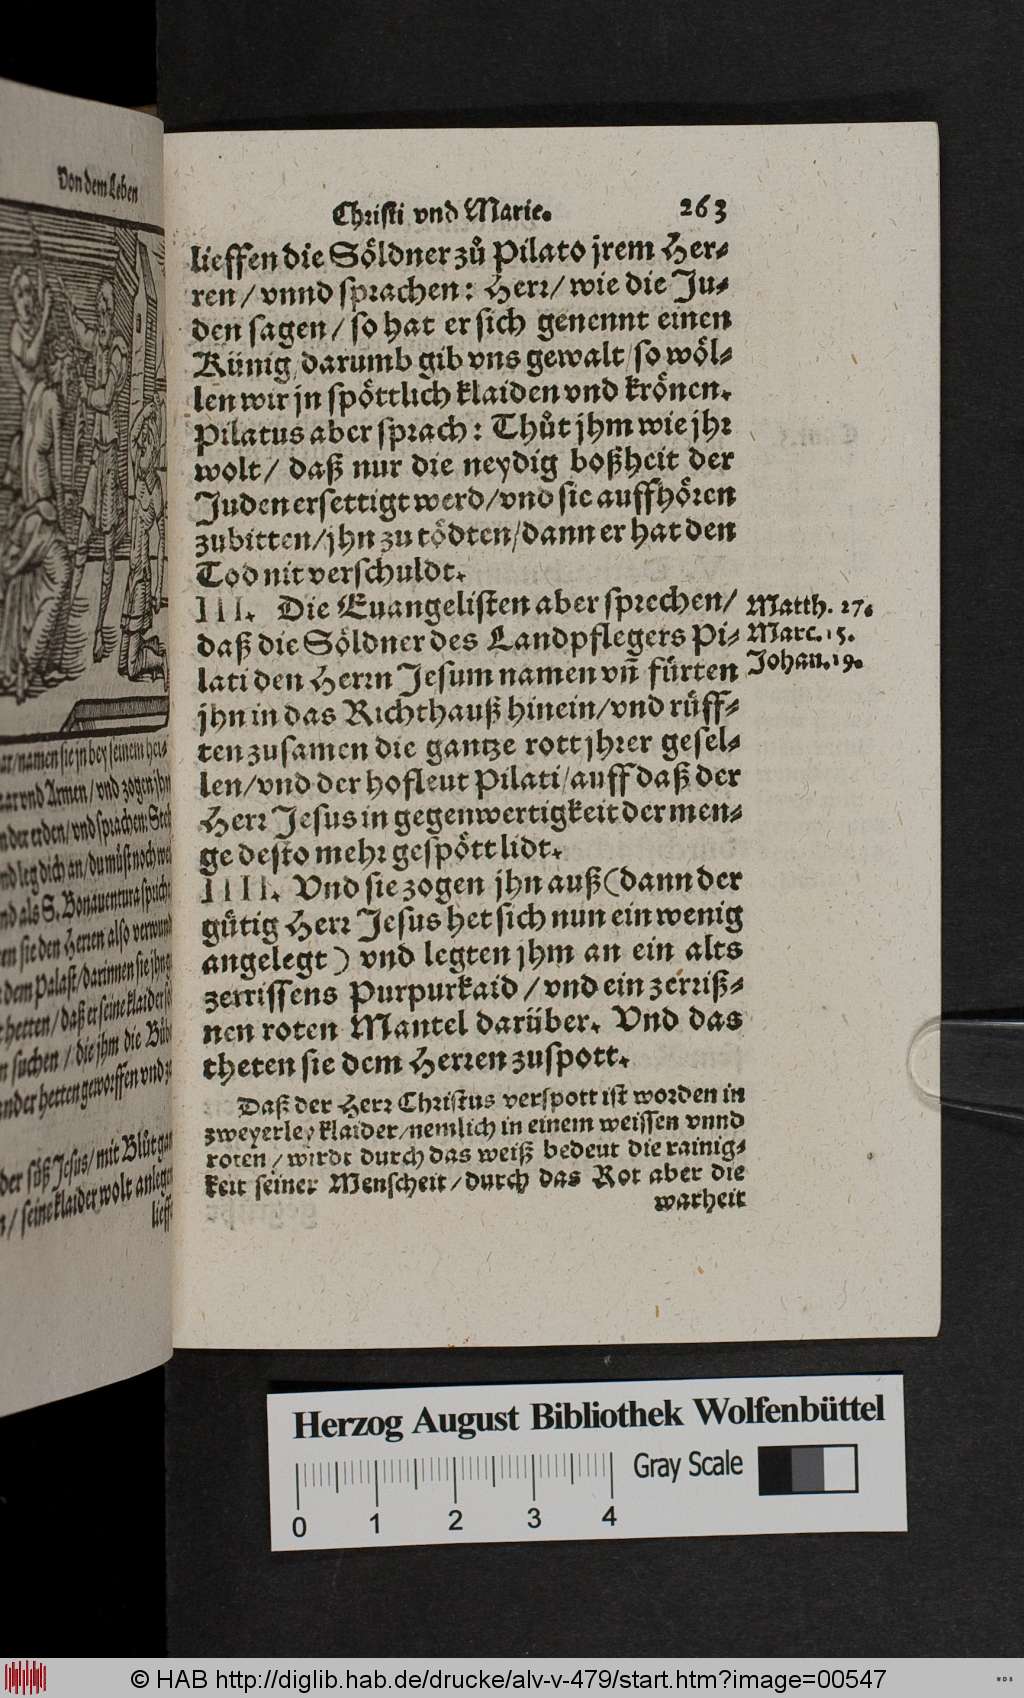 Von dem Leben
namen sie jn bey seinem
vnd Armen / vnd zogen jhn
der erden / vnd sprachen: Steh
leg dich an / du můst noch
als S. Bonauentura spricht
sie den Herren also
dem Palast / darinnen sie jhn
hetten / daß er seine klaider
suchen / die jhm die
hetten geworffen vnd
der süß Jesus / mit Blůt
/ seine klaider wolt anlegen
lieff
Christi vnd Marie. 263
lieffen die Söldner zů Pilato jrem Her-
ren / vnnd sprachen: Herr / wie die Ju-
den sagen / so hat er sich genennt einen
Künig / darumb gib vns gewalt / so wöl-
len wir jn spöttlich klaiden vnd krönen.
Pilatus aber sprach: Thůt jhm wie jhr
wolt / daß nur die neydig boßheit der
Juden ersettigt werd / vnd sie auffhören
zubitten / jhn zu tödten / dann er hat den
Tod nit verschuldt.
III. Die Euangelisten aber sprechen /
Matth. 27.
daß die Söldner des Landpflegers Pi-
Marc. 15.
lati den Herrn Jesum namen vñ fürten
Johan. 19.
jhn in das Richthauß hinein / vnd rüff-
ten zusamen die gantze rott jhrer gesel-
len / vnd der hofleut Pilati / auff daß der
Herr Jesus in gegenwertigkeit der men-
ge desto mehr gespött lidt.
IIII. Vnd sie zogen jhn auß (dann der
gütig Herr Jesus het sich nun ein wenig
angelegt) vnd legten jhm an ein alts
zerrissens Purpurkaid / vnd ein zerriß-
nen roten Mantel darüber. Vnd das
theten sie dem Herren zuspott.
Daß der Herr Christus verspott ist worden in
zweyerley klaider / nemlich in einem weissen vnnd
roten / wirdt durch das weiß bedeut die rainig-
keit seiner Menscheit / durch das Rot aber die
warheit
Herzog August Bibliothek Wolfenbüttel
Gray Scale
0 1 2 3 4
© HAB http://diglib.hab.de/drucke/alv-v-479/start.htm?image=00547